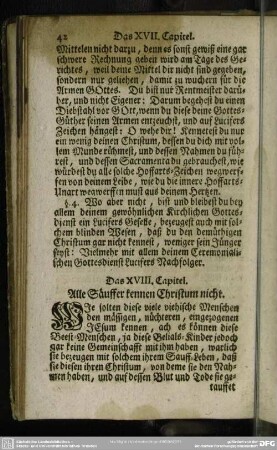 42 Das XVII. Capitel.
Mittelen nicht darzu, denn es sonst gewiß eine gar
schwere Rechnung geben wird am Tage des Ge-
richtes, weil deine Mittel dir nicht sind gegeben,
sondern nur geliehen, damit zu wuchern für die
Armen GOttes. Du bist nur Rentmeister darü-
ber, und nicht Eigener: Darum begehest du einen
Diebstahl vor GOtt, wenn du diese deine Gottes-
Güther seinen Armen entzeuchst, und auf Lucifers
Zeichen hängest: O wehe dir! Kennetest du nur
ein wenig deinen Christum, dessen du dich mit vol-
lem Munde rühmest, und dessen Nahmen du füh-
rest, und dessen Sacramenta du gebrauchest, wie
würdest du alle solche Hoffarts-Zeichen wegwerf-
fen von deinem Leibe, wie du die innere Hoffarts-
Unart wegwerffen must aus deinem Hertzen.
§. 4. Wo aber nicht, bist und bleibest du bey
allem deinem gewöhnlichen Kirchlichem Gottes-
dienst ein Lucifers Geselle, bezeugest auch mit sol-
chem blinden Wesen, daß du den demürbigen
Christum gar nicht kennest, weniger sein Jünger
seyst: Vielmehr mit allem deinem Ceremoniali-
schen Gottesdienst Lucifers Nachfolger.
Das XVIII. Capitel.
Alle Säuffer kennen Christum nicht.
WIe solten diese viele viehische Menschen
den mäßigen, nüchteren, eingezogenen
JESum kennen, ach es können diese
Beest-Menschen, ja diese Belials-Kinder jedoch
gar keine Gemeinschafft mit ihm haben, warlich
sie bezeugen mit solchem ihrem Sauff-Leben, daß
sie diesen ihren Christum, von deme sie den Nah-
men haben, und auf dessen Blut und Tode sie ge-
tauffet